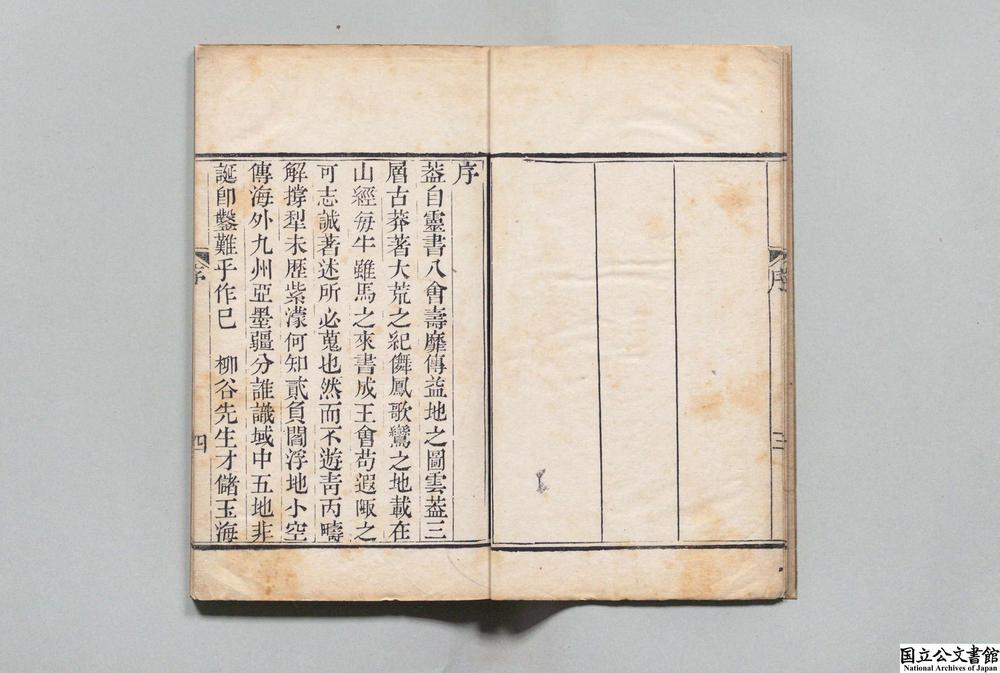 序
三
序
葢自靈書八會壽靡傳益地之圖雲葢三
層古莽著大荒之紀儛鳳歌鸞之地載在
山經每牛雖馬之來書成王會苟遐陬之
可志誠著述所必蒐也然而不遊靑丙疇
解撐犁未歷紫濛何知貳負閻浮地小空
傳海外九州亞墨疆分誰識域中五地非
誕卽鑿難乎作已　柳谷先生才儲玉海
序
四
国立公文書館
National Archives of Japan